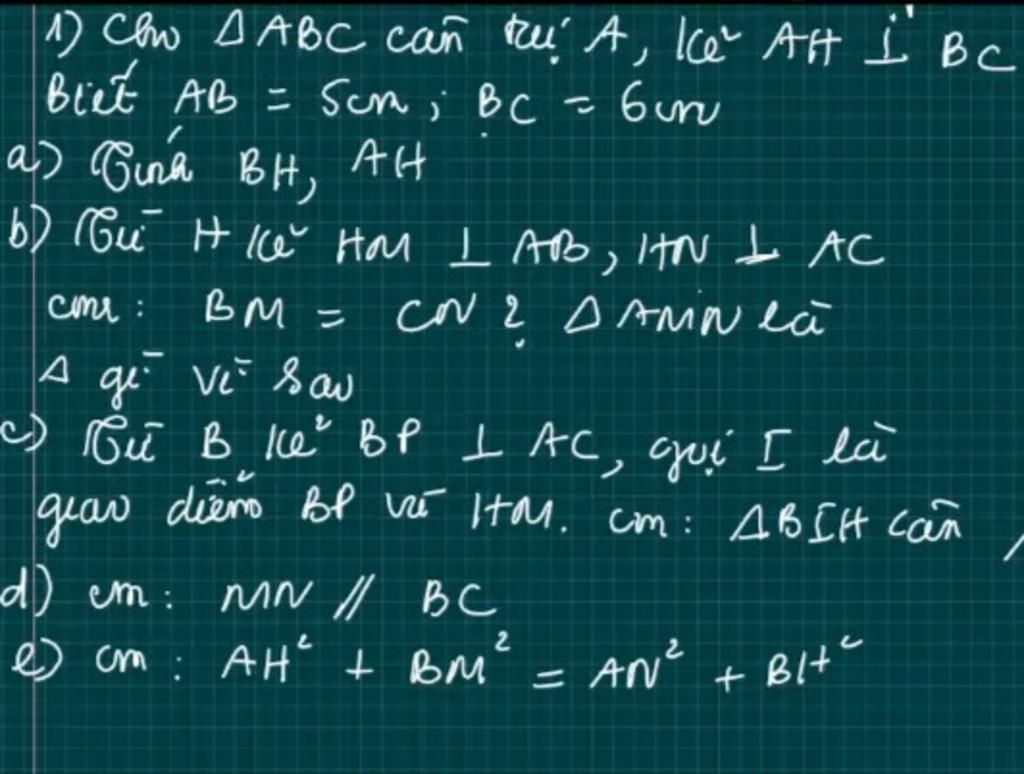 1) Cho ΔABC cân tại A, kẻ AH ⊥ BC
Biết AB = 5cm; BC = 6cm
a) Tính BH, AH
b) Từ H kẻ HM ⊥ AB, HN ⊥ AC
cmr: BM = CN? ΔAMN là
Δ gì vì sao
c) Từ B kẻ BP ⊥ AC, gọi I là
giao điểm BP và HM. cm: ΔBIH cân
d) cm: MN // BC
e) cm: AH² + BM² = AN² + BH²